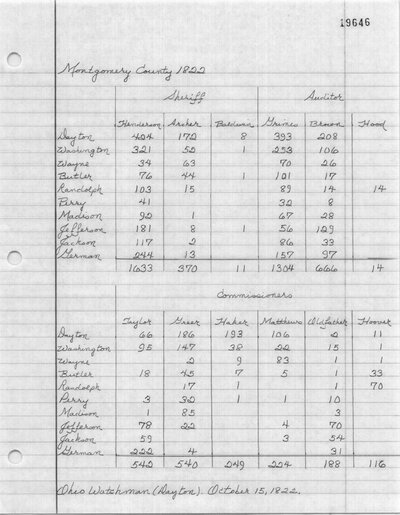 19646
Montgomery County 1822
Sheriff Auditor
Henderson Archer Baldwin Grimes Brown Hood
Dayton 424 172 8 393 208
Washington 321 52 1 253 106
Wayne 34 63 70 26
Butler 76 44 1 121 17
Randolph 103 15 89 14 14
Perry 41 32 8
Madison 92 1 67 28
Jefferson 181 8 1 56 129
Jackson 117 2 86 33
German 244 13 157 97
1633 370 11 1324 666 14
Commissioners
Taylor Greer Haker Matthews Oldfather Hoover
Dayton 66 186 193 106 2 11
Washington 95 147 38 22 15 1
Wayne 2 9 83 1 1
Butler 18 45 7 5 1 33
Randolph 17 1 70
Perry 3 32 1 1 10
Madison 1 85 3
Jefferson 78 22 4 70
Jackson 59 3 54
German 222 4 31
542 540 249 224 188 116
Ohio Watchman (Dayton). October 15, 1822.